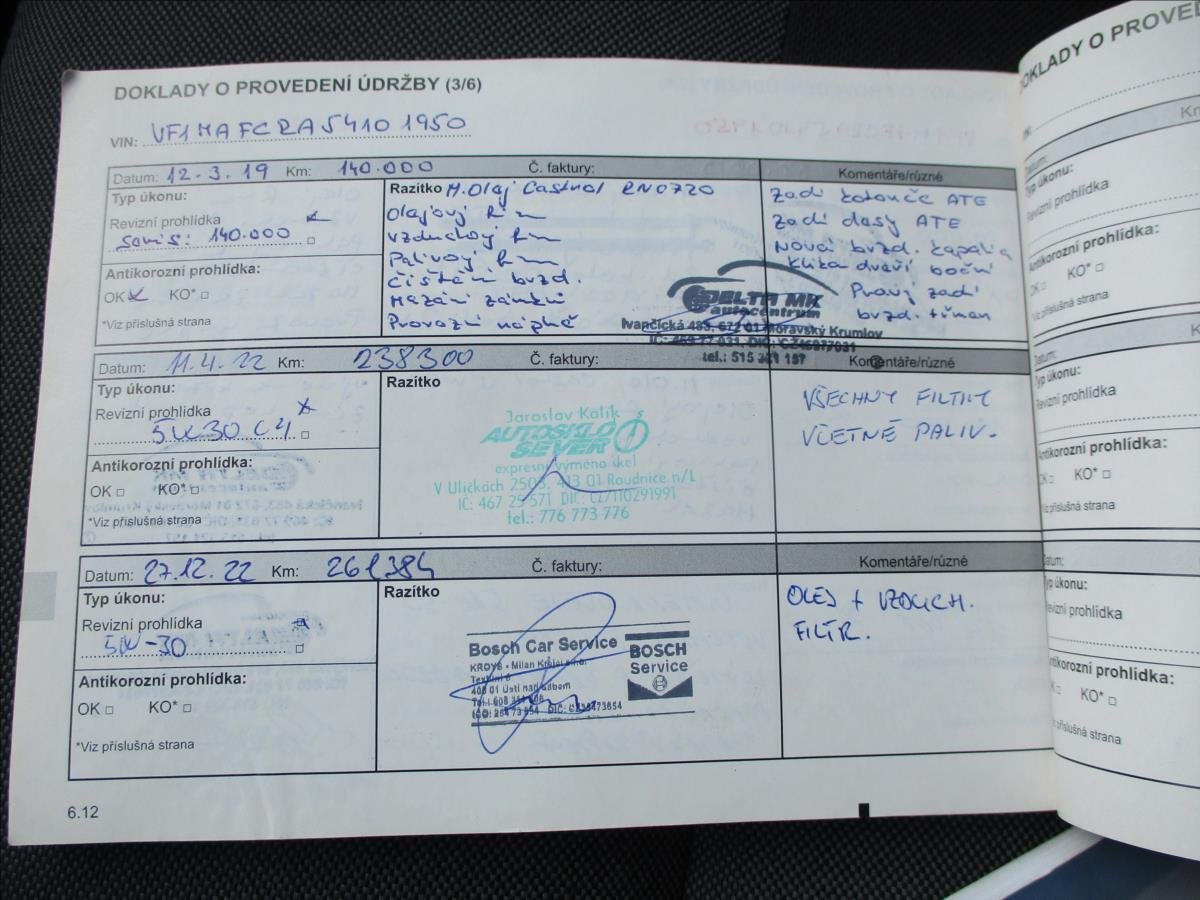 DOKLADY O PROVEDENÍ ÚDRŽBY (3/6)
VIN: VF1MAFCRA54101950
Datum: 12.3.19 Km: 140.000 Č. faktury:
Komentáře/různé
Typ úkonu:
Revizní prohlídka
servis: 140.000
Antikorozní prohlídka:
OK KO*
*Viz příslušná strana
Razítko M.Olej Castrol RN0720
Olejový
Vzduchový
Palivový
Čištění brzd.
Mazání zámků
Provozní náplně
DELTA MK
autocentrum
Ivančická 483, 672 01 Moravský Krumlov
tel.: 515 321 157
Zadí kotouče ATE
Zadí dasy ATE
Nová brzd. kapalina
Klika dveří boční
Pravý zadí
brzd. třman
Datum: 11.4.22 Km: 238300 Č. faktury:
Komentáře/různé
Typ úkonu:
Revizní prohlídka
5W30 C4
Antikorozní prohlídka:
OK KO*
*Viz příslušná strana
Razítko
Jaroslav Kalik
AUTOSKLO
SEVER
expresní výměna skel
V Uličkách 2503, 413 01 Roudnice n/L
IČ: 467 25 571 DIČ: CZ7110291991
tel.: 776 773 776
VŠECHNY FILTRY
VČETNĚ PALIV.
Datum: 27.12.22 Km: 261384 Č. faktury:
Komentáře/různé
Typ úkonu:
Revizní prohlídka
5W-30
Antikorozní prohlídka:
OK KO*
*Viz příslušná strana
Razítko
Bosch Car Service
400 01 Ústí nad Labem
BOSCH
Service
OLEJ + VZDUCH.
FILTR.
6.12
DOKLADY O PROVEDENÍ
Datum:
Typ úkonu:
Revizní prohlídka
Antikorozní prohlídka:
KO*
příslušná strana
Typ úkonu:
Revizní prohlídka
Antikorozní prohlídka:
KO*
příslušná strana
Typ úkonu:
Revizní prohlídka
Antikorozní prohlídka:
KO*
příslušná strana